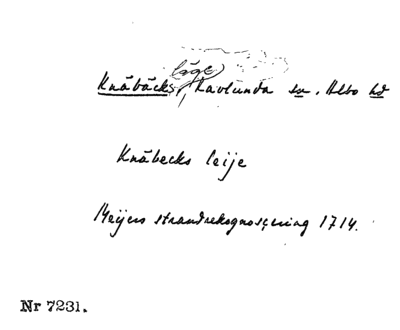 läge
Knäbäcks, Ravlunda sn. Albo hd
Knäbecks leije
Meijers strandrekognoscering 1714.
Nr 7231.